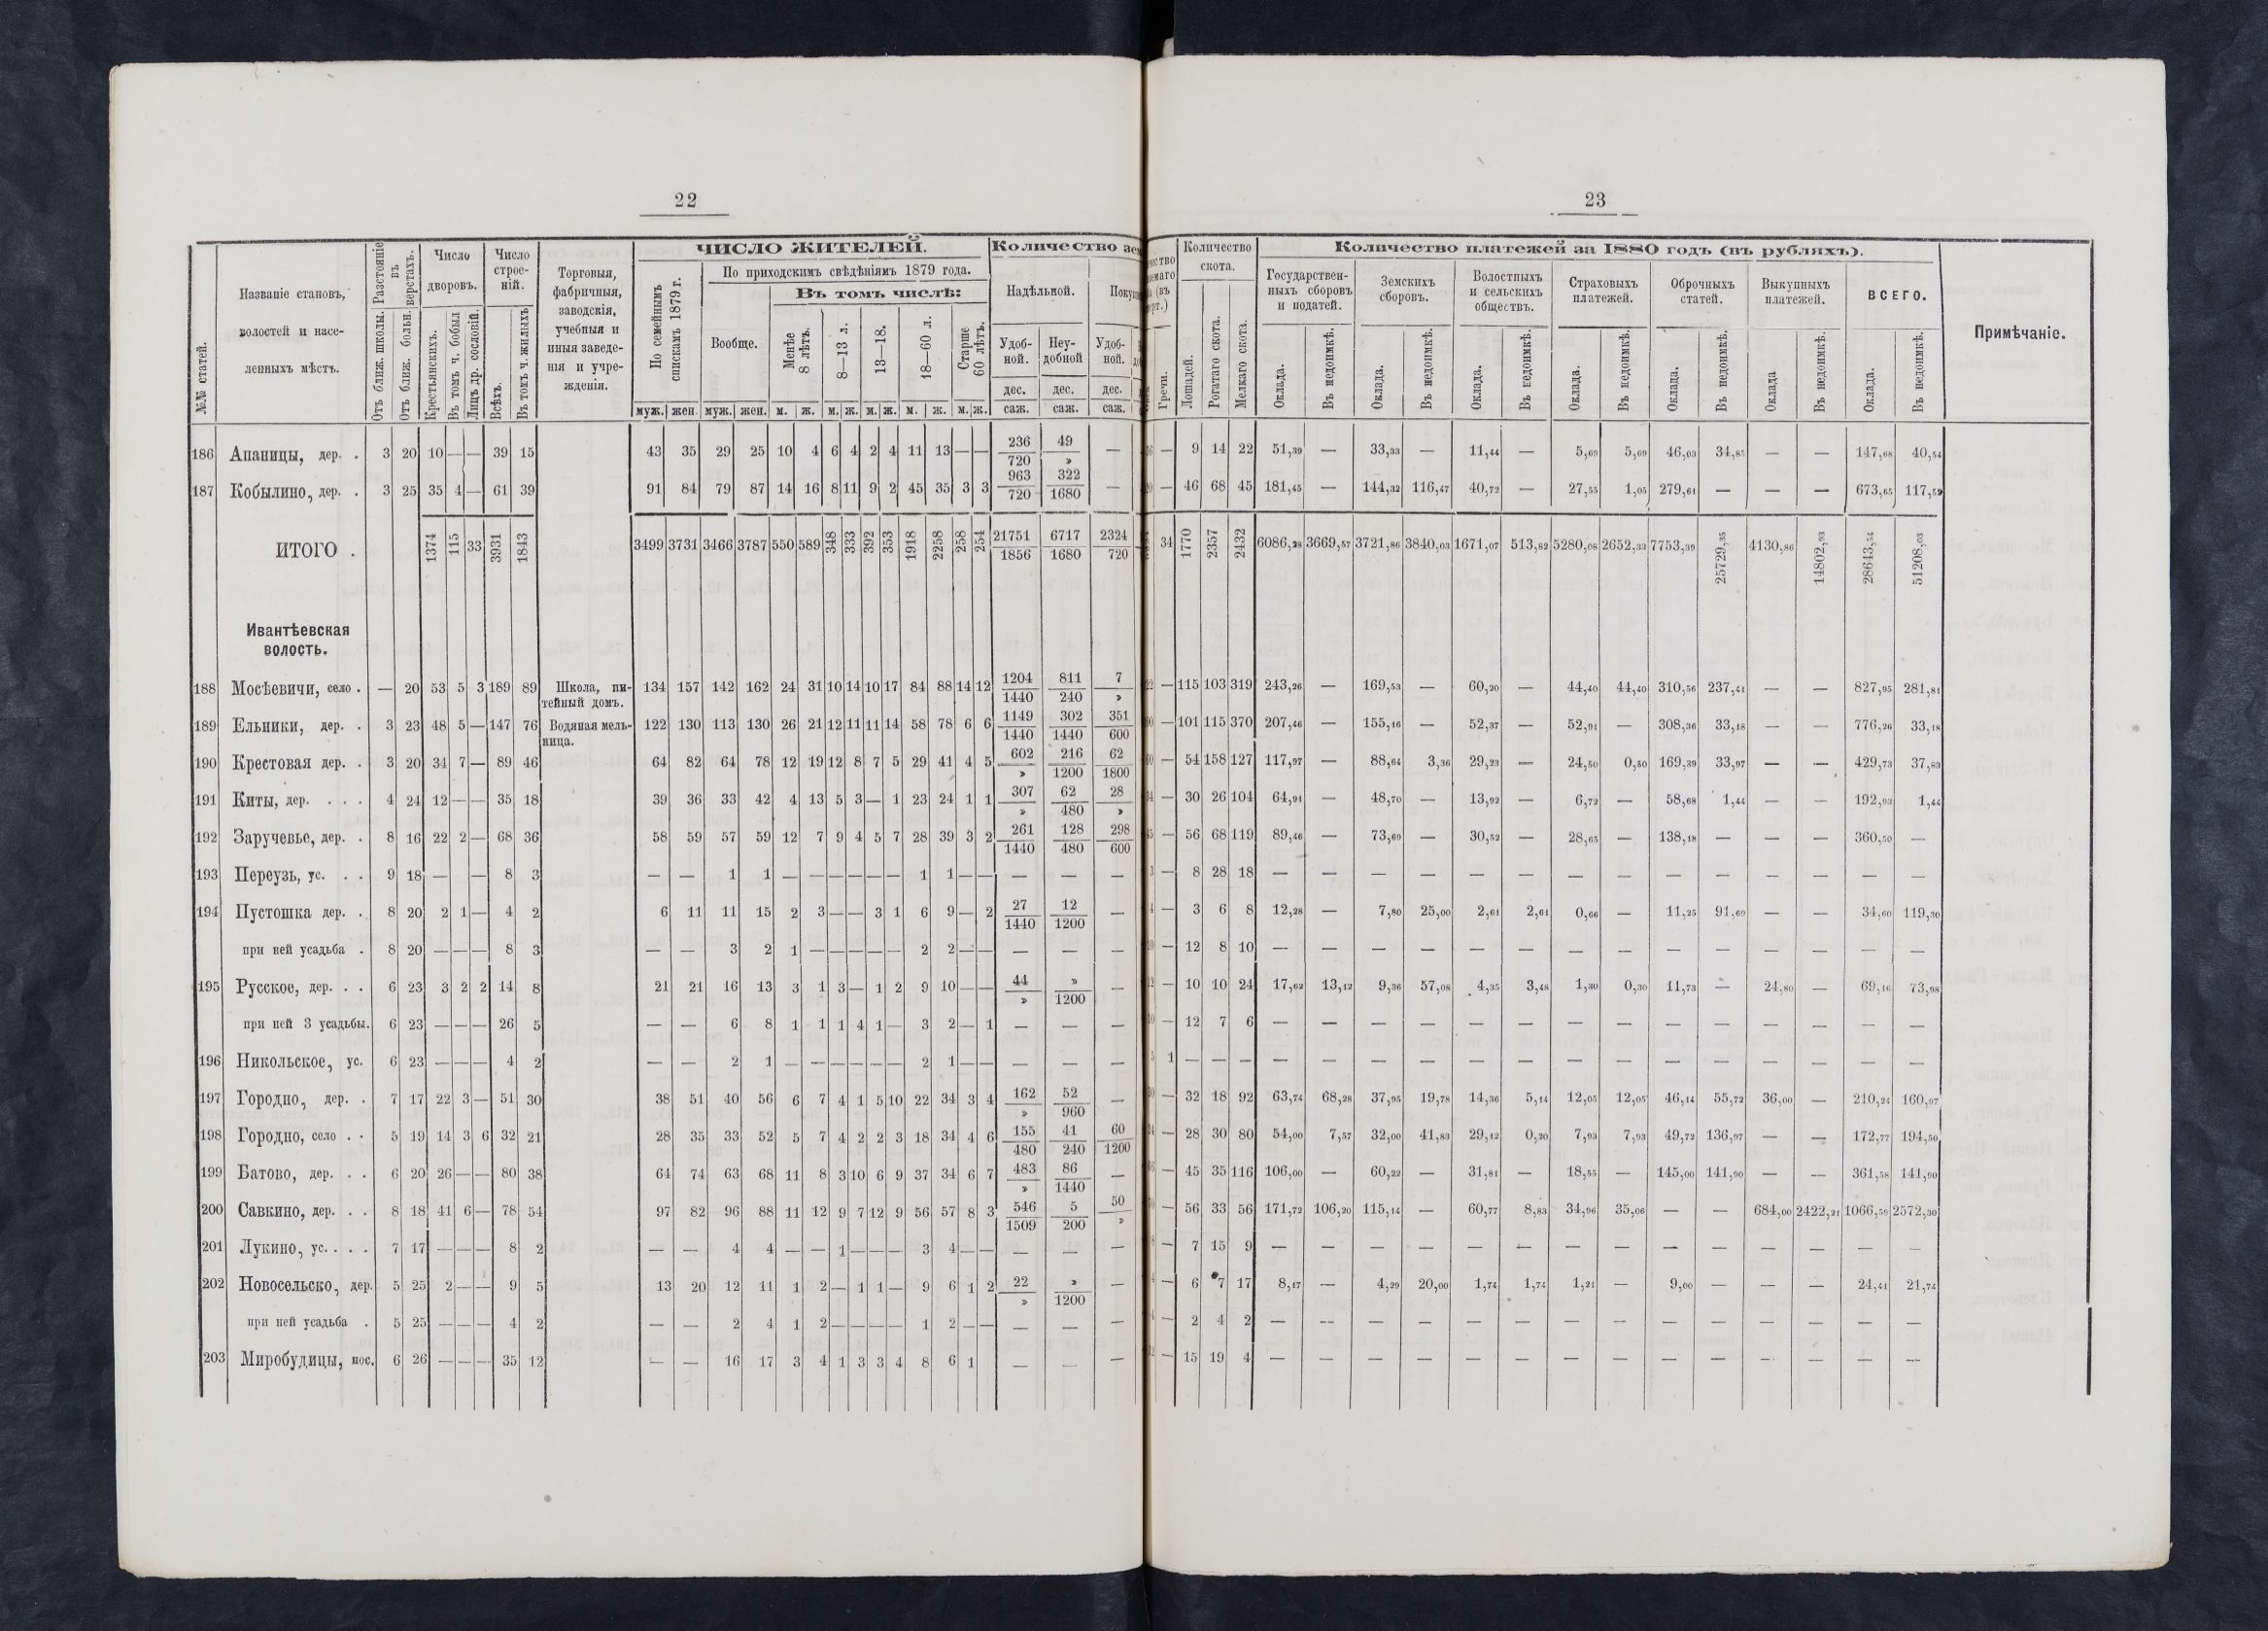 22
23
№№ статей.
Названіе становъ, волостей и населенныхъ мѣстъ.
Разстояніе въ верстахъ.
Отъ ближ. школы.
Отъ ближ. больн.
Число дворовъ.
Крестьянскихъ.
Въ томъ ч. бобыл
Лицъ др. сословій.
Число строеній.
Всѣхъ.
Въ томъ ч. жилыхъ
Торговыя, фабричныя, заводскія, учебныя и иныя заведенія и учрежденія.
ЧИСЛО ЖИТЕЛЕЙ.
По семейнымъ спискамъ 1879 г.
По приходскимъ свѣдѣніямъ 1879 года.
Вообще.
Въ томъ числѣ:
Менѣе 8 лѣтъ.
8—13 л.
13—18.
18—60 л.
Старше 60 лѣтъ.
муж. жен. муж. жен. м. ж. м. ж. м. ж. м. ж. м. ж.
Количество зем
Надѣльной.
Покуп
Удобной.
Неудобной
Удобной.
дес. дес. дес.
саж. саж. саж.
Гречи.
Количество скота.
Лошадей.
Рогатаго скота.
Мелкаго скота.
Количество платежей за 1880 годъ (въ рубляхъ).
Государственныхъ сборовъ и податей.
Земскихъ сборовъ.
Волостныхъ и сельскихъ обществъ.
Страховыхъ платежей.
Оброчныхъ статей.
Выкупныхъ платежей.
ВСЕГО.
Оклада. Въ недоимкѣ. Оклада. Въ недоимкѣ. Оклада. Въ недоимкѣ. Оклада. Въ недоимкѣ. Оклада. Въ недоимкѣ. Оклада Въ недоимкѣ. Оклада. Въ недоимкѣ.
Примѣчаніе.
186 Апаницы, дер. . 3 20 10 — — 39 15 43 35 29 25 10 4 6 4 2 4 11 13 — — 236/720 49/» — — 9 14 22 51,39 — 33,33 — 11,44 — 5,69 5,69 46,03 34,85 — — 147,68 40,54
187 Кобылино, дер. . 3 25 35 4 — 61 39 91 84 79 87 14 16 8 11 9 2 45 35 3 3 963/720 322/1680 — — 46 68 45 181,45 — 144,32 116,47 40,72 — 27,55 1,05 279,61 — — — 673,65 117,52
ИТОГО . 1374 115 33 3931 1843 3499 3731 3466 3787 550 589 348 333 392 353 1918 2258 258 254 21751/1856 6717/1680 2324/720 34 1770 2357 2432 6086,28 3669,57 3721,86 3840,03 1671,07 513,82 5280,08 2652,33 7753,39 25729,35 4130,86 14802,93 28643,54 51208,03
Ивантѣевская
волость.
188 Мосѣевичи, село . — 20 53 5 3 189 89 Школа, питейный домъ. 134 157 142 162 24 31 10 14 10 17 84 88 14 12 1204/1440 811/240 7/» — 115 103 319 243,26 — 169,53 — 60,20 — 44,40 44,40 310,56 237,41 — — 827,95 281,81
189 Ельники, дер. . 3 23 48 5 — 147 76 Водяная мельница. 122 130 113 130 26 21 12 11 11 14 58 78 6 6 1149/1440 302/1440 351/600 — 101 115 370 207,46 — 155,16 — 52,37 — 52,91 — 308,36 33,18 — — 776,26 33,18
190 Крестовая дер. . 3 20 34 7 — 89 46 64 82 64 78 12 19 12 8 7 5 29 41 4 5 602/» 216/1200 62/1800 — 54 158 127 117,97 — 88,64 3,36 29,23 — 24,50 0,50 169,39 33,97 — — 429,73 37,83
191 Киты, дер. . . . 4 24 12 — — 35 18 39 36 33 42 4 13 5 3 — 1 23 24 1 1 307/» 62/480 28/» — 30 26 104 64,91 — 48,70 — 13,92 — 6,72 — 58,68 1,44 — — 192,93 1,44
192 Заручевье, дер. . 8 16 22 2 — 68 36 58 59 57 59 12 7 9 4 5 7 28 39 3 2 261/1440 128/480 298/600 — 56 68 119 89,46 — 73,69 — 30,52 — 28,65 — 138,18 — — — 360,50 —
193 Переузь, ус. . . 9 18 — — 8 3 — — 1 1 — — — — — — 1 1 — — — — — — 8 28 18 — — — — — — — — — — — — — —
194 Пустошка дер. . 8 20 2 1 — 4 2 6 11 11 15 2 3 — — 3 1 6 9 — 2 27/1440 12/1200 — — 3 6 8 12,28 — 7,80 25,00 2,61 2,61 0,66 — 11,25 91,69 — — 34,60 119,30
при ней усадьба . 8 20 — — — 8 3 — — 3 2 1 — — — — — 2 2 — — — — — — 12 8 10 — — — — — — — — — — — — — —
195 Русское, дер. . . 6 23 3 2 2 14 8 21 21 16 13 3 1 3 — 1 2 9 10 — — 44/» »/1200 — — 10 10 24 17,62 13,12 9,36 57,08 4,35 3,48 1,30 0,30 11,73 — 24,80 — 69,16 73,98
при ней 3 усадьбы. 6 23 — — — 26 5 — — 6 8 1 1 1 4 1 — 3 2 — 1 — — — — 12 7 6 — — — — — — — — — — — — — —
196 Никольское, ус. 6 23 — — — 4 2 — — 2 1 — — — — — — 2 1 — — — — — 1 — — — — — — — — — — — — — — — — —
197 Городно, дер. . 7 17 22 3 — 51 30 38 51 40 56 6 7 4 1 5 10 22 34 3 4 162/» 52/960 — — 32 18 92 63,74 68,28 37,95 19,78 14,36 5,14 12,05 12,05 46,14 55,72 36,00 — 210,24 160,97
198 Городно, село . . 5 19 14 3 6 32 21 28 35 33 52 5 7 4 2 2 3 18 34 4 6 155/480 41/240 60/1200 — 28 30 80 54,00 7,57 32,00 41,83 29,12 0,20 7,93 7,93 49,72 136,97 — — 172,77 194,50
199 Батово, дер. . . 6 20 26 — — 80 38 64 74 63 68 11 8 3 10 6 9 37 34 6 7 483/» 86/1440 — — 45 35 116 106,00 — 60,22 — 31,81 — 18,55 — 145,00 141,90 — — 361,58 141,90
200 Савкино, дер. . . 8 18 41 6 — 78 54 97 82 96 88 11 12 9 7 12 9 56 57 8 3 546/1509 5/200 50/» — 56 33 56 171,72 106,20 115,14 — 60,77 8,83 34,96 35,06 — — 684,00 2422,21 1066,59 2572,30
201 Лукино, ус. . . . 7 17 — — — 8 2 — — 4 4 — — 1 — — — 3 4 — — — — — — 7 15 9 — — — — — — — — — — — — — —
202 Новосельско, дер. 5 25 2 — — 9 5 13 20 12 11 1 2 — 1 1 — 9 6 1 2 22/» »/1200 — — 6 7 17 8,17 — 4,29 20,00 1,74 1,74 1,21 — 9,00 — — — 24,41 21,74
при ней усадьба . 5 25 — — — 4 2 — — 2 4 1 2 — — — — 1 2 — — — — — — 2 4 2 — — — — — — — — — — — — — —
203 Миробудицы, пос. 6 26 — — — 35 12 — — 16 17 3 4 1 3 3 4 8 6 1 — — — — 15 19 4 — — — — — — — — — — — — — —